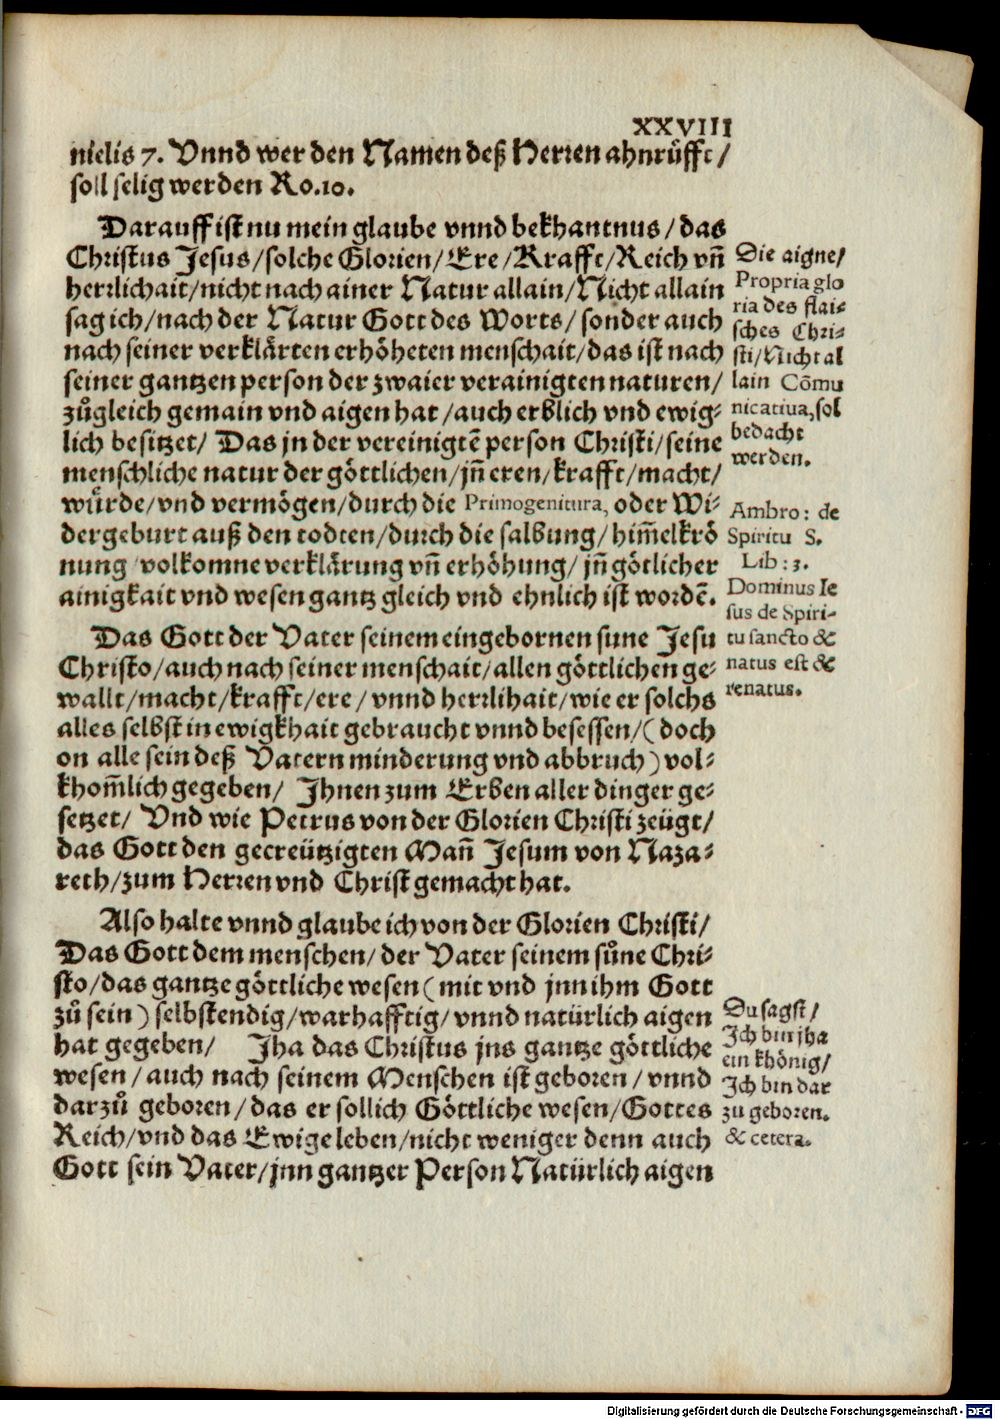 XXVIII
nielis 7. Vnnd wer den Namen deß Herren ahnrüfft /
soll selig werden Ro.10.
Darauff ist nu mein glaube vnnd bekhantnus / das
Christus Jesus / solche Glorien / Ere / Krafft / Reich vn̄
herrlichait / nicht nach ainer Natur allain / Nicht allain
sag ich / nach der Natur Gott des Worts / sonder auch
nach seiner verklärten erhöheten menschait / das ist nach
seiner gantzen person der zwaier verainigten naturen /
zůgleich gemain vnd aigen hat / auch erblich vnd ewig⸗
lich besitzet / Das jn der vereinigtē person Christi / seine
menschliche natur der göttlichen / jn̄ eren / krafft / macht /
würde / vnd vermögen / durch die Primogenitura, oder Wi⸗
dergeburt auß den todten / durch die salbung / him̄elkrö
nung volkomne verklärung vn̄ erhöhung / jn̄ götlicher
ainigkait vnd wesen gantz gleich vnd ehnlich ist wordē.
Das Gott der Vater seinem eingebornen sune Jesu
Christo / auch nach seiner menschait / allen göttlichen ge⸗
wallt / macht / krafft / ere / vnnd herrlihait / wie er solchs
alles selbst in ewigkhait gebraucht vnnd besessen / ( doch
on alle sein deß Vatern minderung vnd abbruch ) vol⸗
khom̄lich gegeben / Ihnen zum Erben aller dinger ge⸗
setzet / Vnd wie Petrus von der Glorien Christi zeügt /
das Gott den gecreützigten Man̄ Jesum von Naza⸗
reth / zum Herren vnd Christ gemacht hat.
Also halte vnnd glaube ich von der Glorien Christi /
Das Gott dem menschen / der Vater seinem sůne Chri⸗
sto / das gantze göttliche wesen ( mit vnd jnn ihm Gott
zů sein ) selbstendig / warhafftig / vnnd natürlich aigen
hat gegeben / Iha das Christus jns gantze göttliche
wesen / auch nach seinem Menschen ist geboren / vnnd
darzů geboren / das er sollich Göttliche wesen / Gottes
Reich / vnd das Ewige leben / nicht weniger denn auch
Gott sein Vater / jnn gantzer Person Natürlich aigen
Die aigne /
Propria glo
ria des flai⸗
sches Chri⸗
sti / Nicht al
lain Cōmu
nicatiua, sol
bedacht
werden.
Ambro: de
Spiritu S.
Lib: 3.
Dominus Ie
sus de Spiri-
tu sancto &
natus est &
renatus.
Du sagst /
Ich bin jha
ein khönig /
Ich bin dar
zu geboren.
& cetera.
Digitalisierung gefördert durch die Deutsche Forschungsgemeinschaft - DFG